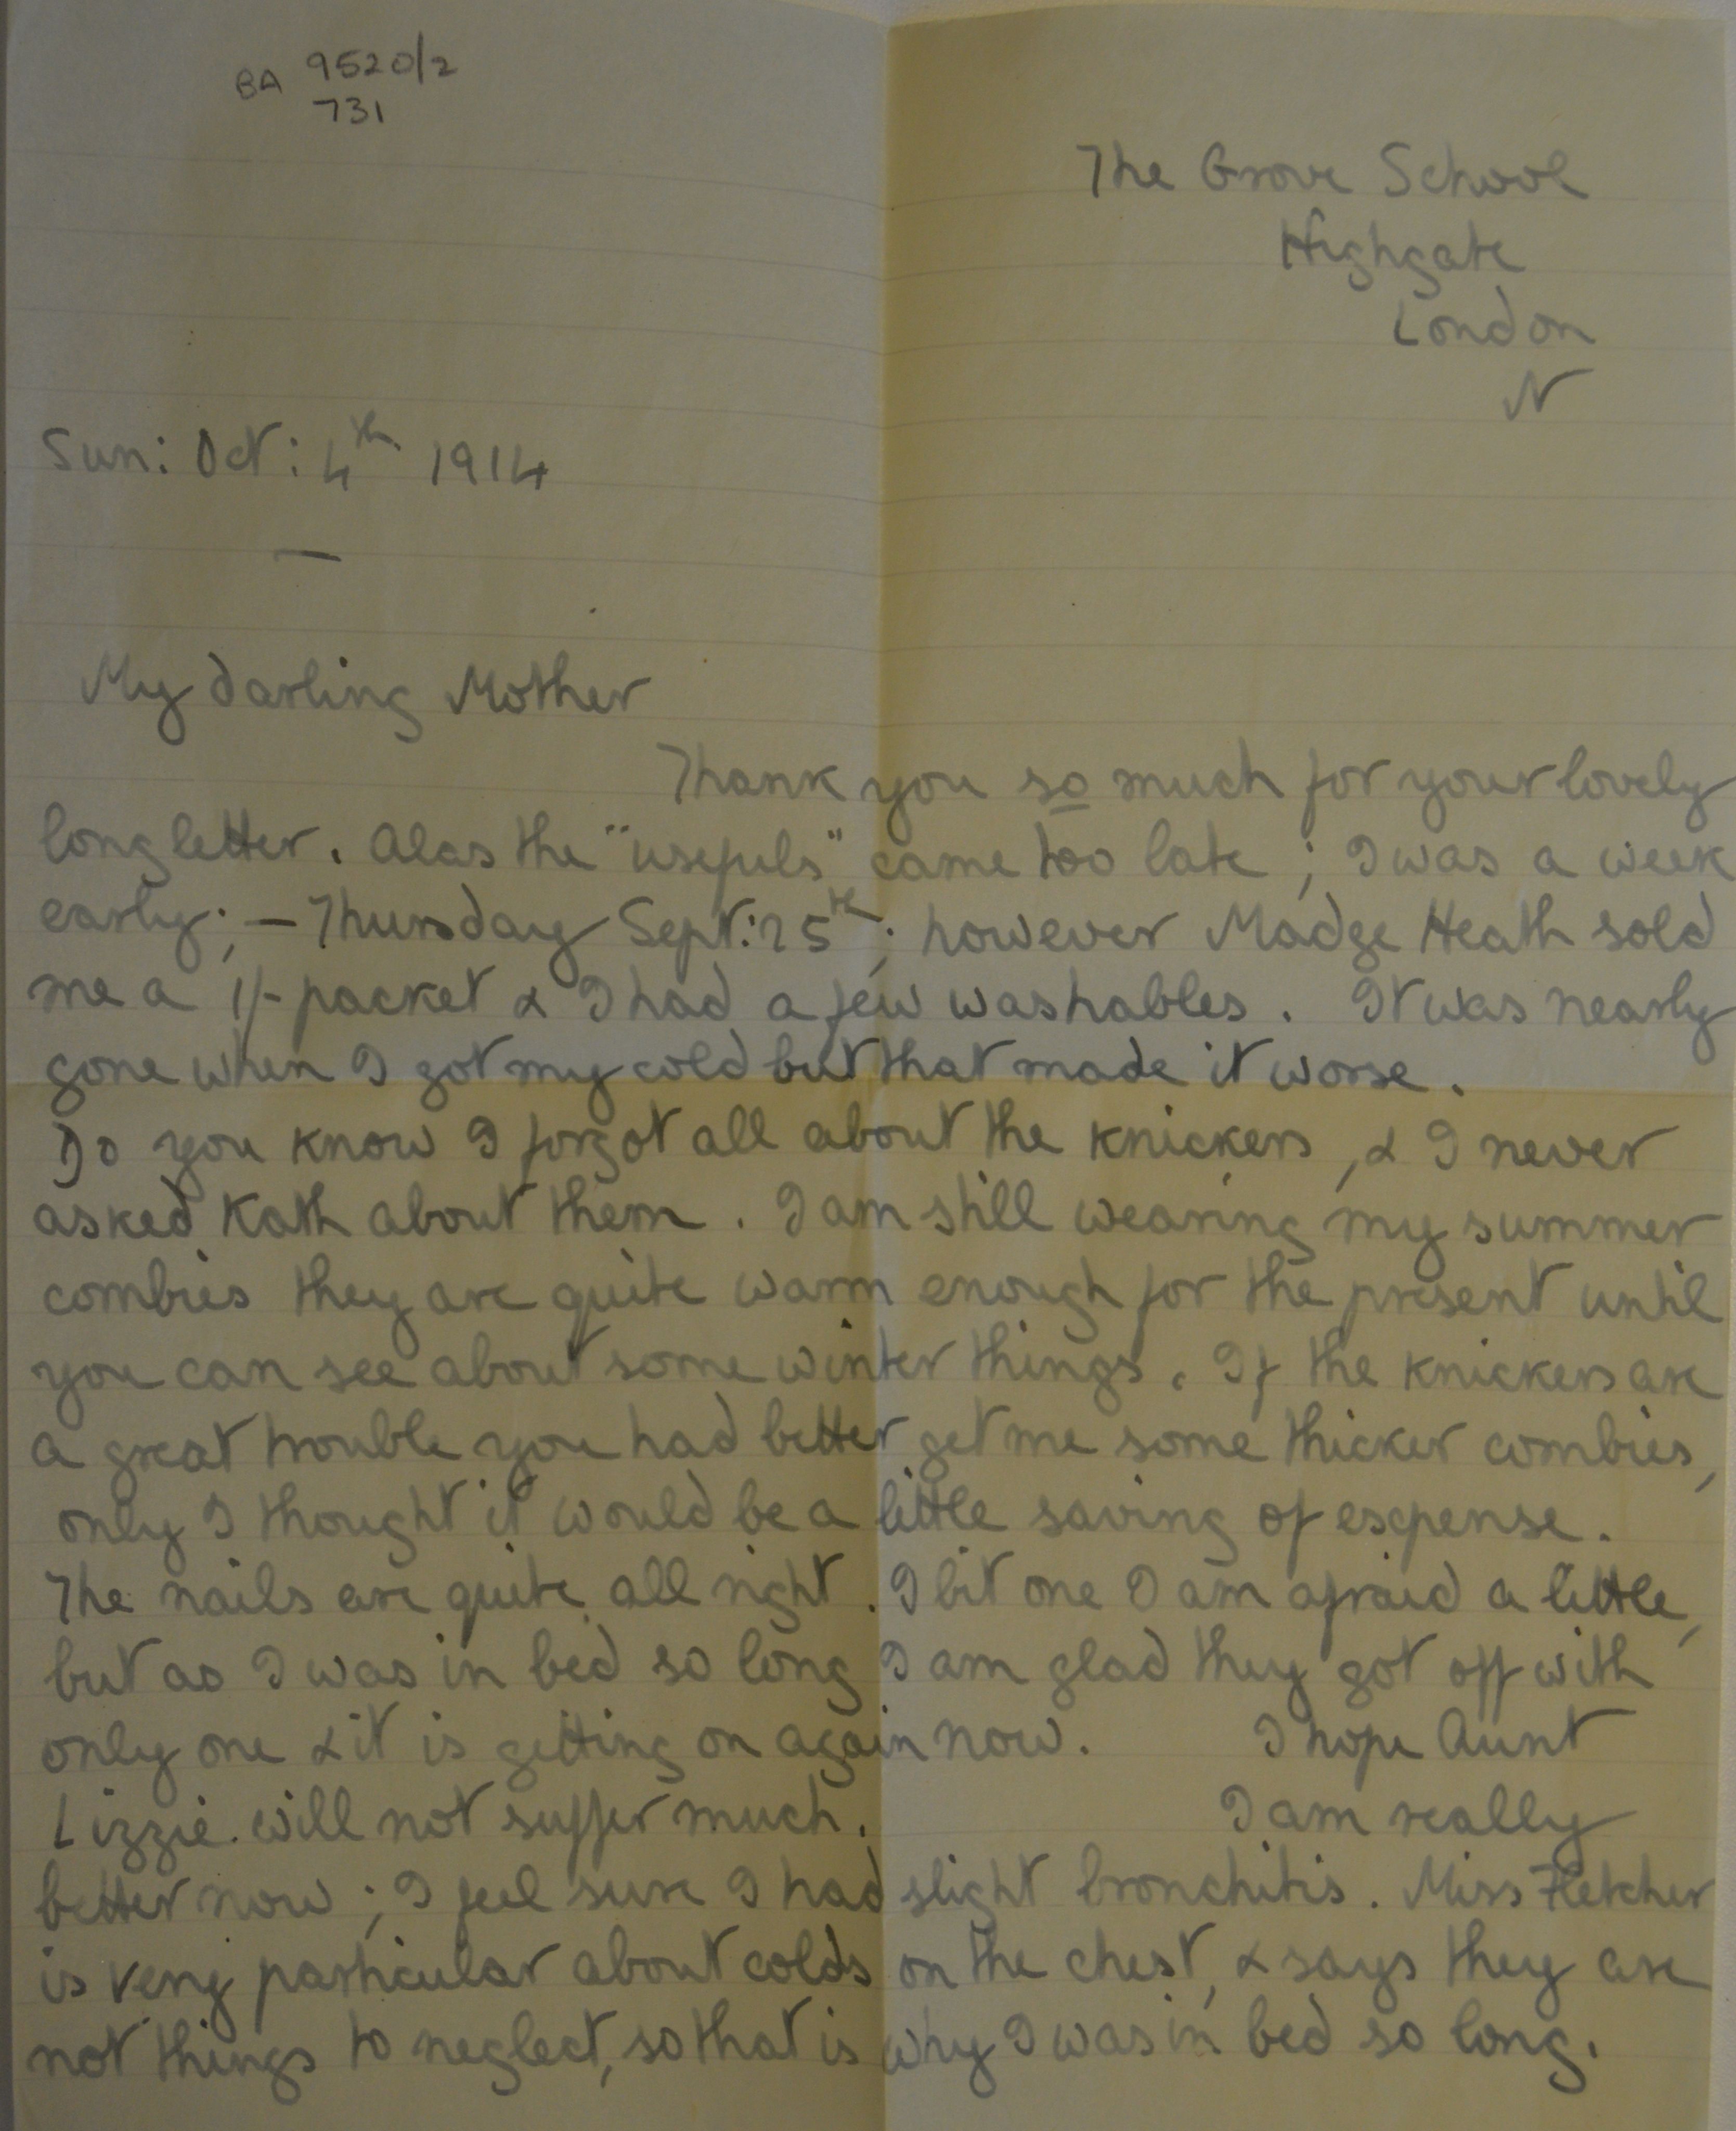 BA 9520/2
731
The Grove School
Highgate
London
N
Sun: Oct: 4th 1914
—
My darling Mother
Thank you so much for your lovely
long letter. Alas the "usefuls" came too late; I was a week
early; — Thursday Sept: 25th; however Madge Heath sold
me a 1/- packet & I had a few washables. It was nearly
gone when I got my cold but that made it worse.
Do you know I forgot all about the knickers, & I never
asked Kath about them. I am still wearing my summer
combies they are quite warm enough for the present until
you can see about some winter things. If the knickers are
a great trouble you had better get me some thicker combies,
only I thought it would be a little saving of expense.
The nails are quite all right. I bit one I am afraid a little,
but as I was in bed so long I am glad they got off with
only one & it is getting on again now. I hope Aunt
Lizzie will not suffer much. I am really
better now; I feel sure I had slight bronchitis. Miss Fletcher
is very particular about colds on the chest, & says they are
not things to neglect, so that is why I was in bed so long.